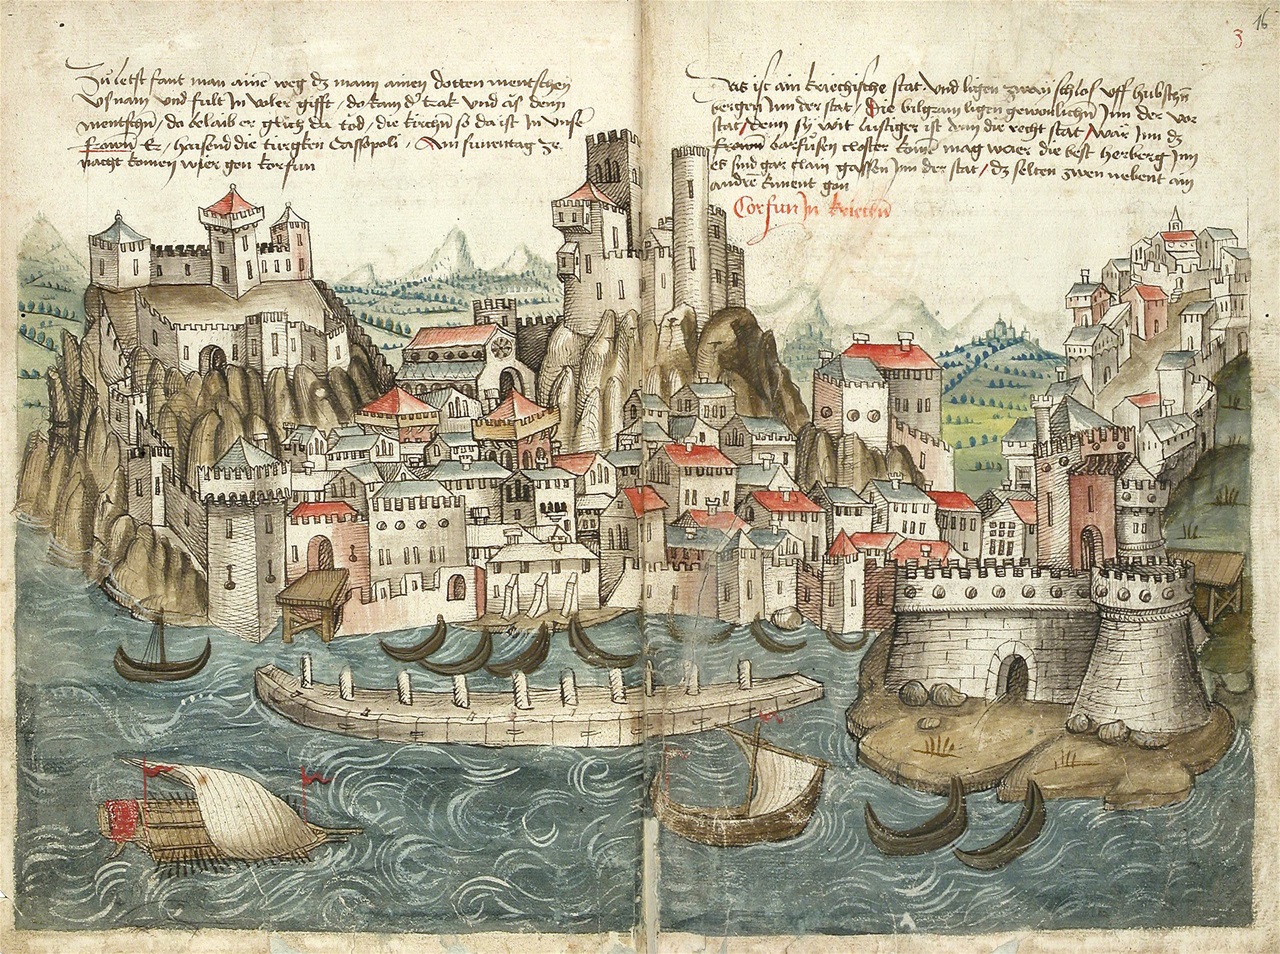 Zu letst fant man ainē weg dz mann ainen dotten mentschen
vsnam und fult In voler gifft / do kam dʼ trak und aß denn
mentschn / da belaib er glich da tod / die kirchn so da ist In unser
frown Er / haisend die turgken Cassopoli / Am sunnentag ze
nacht komen wier gen korfun
Das ist ain kriechische stat und ligen zwaii schloß uff hubschn
bergen Jnn der stat / Die bilgram ligen gewonlichn Jnn der vor
stat / denn sy wit lustiger ist denn die recht stat / wār Jnn dz
frown barfůsen closter komē mag wāer die best herberg Jnn
es sind gar clain gassen Jnn der stat / dz selten zwen nebent ain
andrē kunent gon
Corfun Jn kriechn
3
16